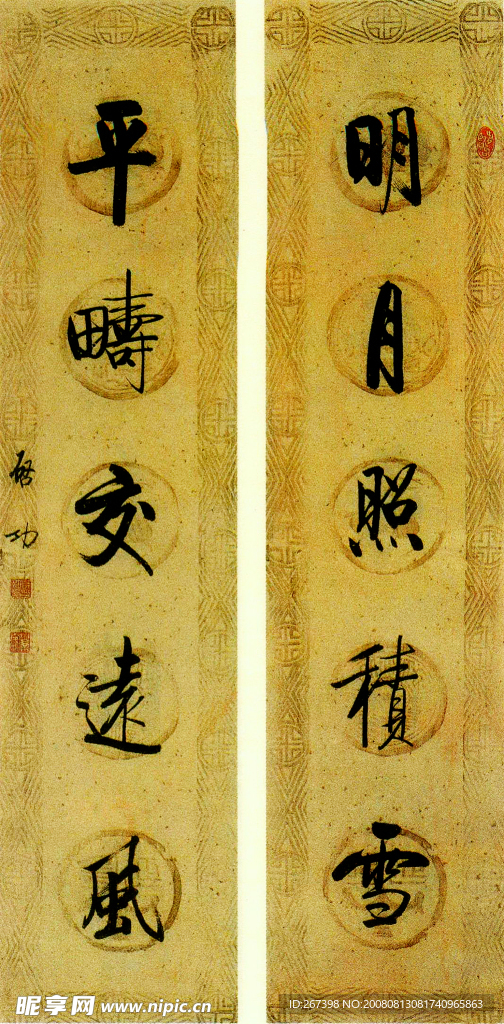 明月照積雪
平疇交遠風
啓功
昵享网 www.nipic.cn
ID:267398 NO:20080813081740965863